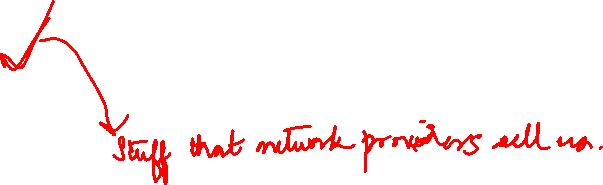 Stuff that network providers sell us.